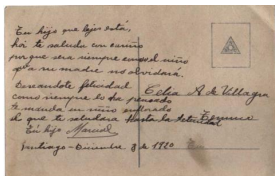 Tu hijo que lejos está,
hoi te saluda con cariño
porque era siempre niño
a su madre no olvidará.
Deseandote felicidad
como siempre lo ha pensado
te manda un niño
el que te saludara Hasta la
Tu hijo Manuel
Santiago - Diciembre 8 de 1910
Celia A. de Villagra